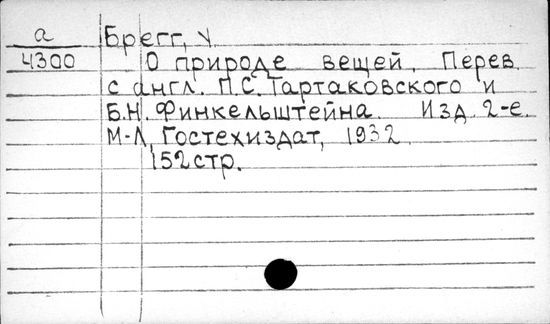 а
4300
Брегг, У.
О природе вещей. Перев.
с англ. П.С. Тартаковского и
Б.Н. Финкельштейна. Изд. 2-е.
М-Л, Гостехиздат, 1932.
152стр.